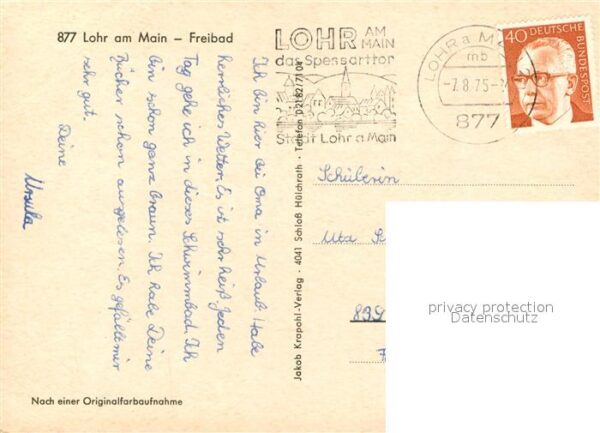 877 Lohr am Main – Freibad
Ich bin hier bei Oma in Urlaub. Habe
herrliches Wetter. Es ist sehr heiß. Jeden
Tag gehe ich in dieses Schwimmbad. Ich
bin schon ganz braun. Ich habe Deine
Bücher schon ausgelesen. Es gefällt mir
sehr gut.
Deine
Ursula
Nach einer Originalfarbaufnahme
Jakob Krapohl-Verlag · 4041 Schloß Hülchrath · Telefon 02182/7104
LOHR AM MAIN
das Spessarttor
Stadt Lohr a Main
LOHR a MAIN
mb
-7.8.75-
877
40 DEUTSCHE BUNDESPOST
Schülerin
Uta S
839
privacy protection
Datenschutz